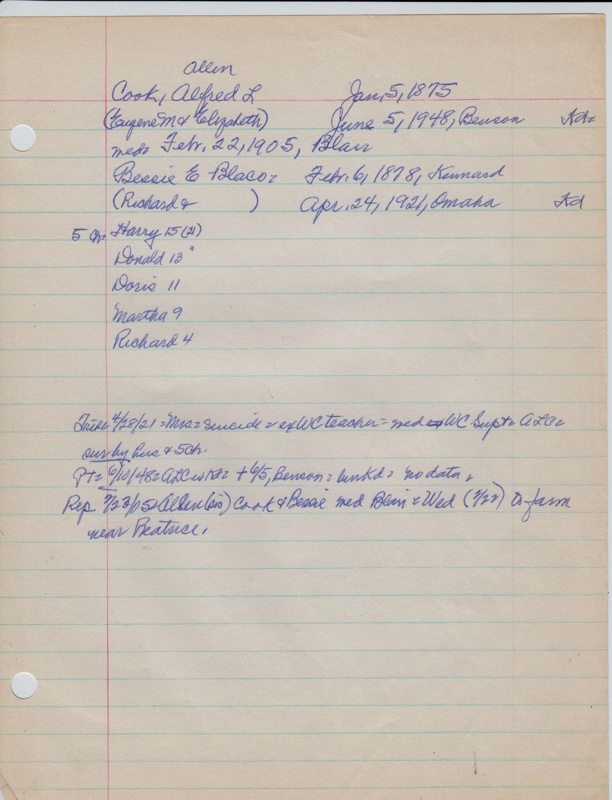 Allen
Cook, Alfred L Jan. 5, 1875
(Eugene M & Elizabeth) June 5, 1948, Benson Kd=
med= Febr. 22, 1905, Blair
Bessie E Blaco= Febr. 6, 1878, Kennard
(Richard & ) Apr. 24, 1921, Omaha Kd
5 ch Harry 15 (21)
Donald 13 "
Doris 11
Martha 9
Richard 4
Trib= 4/28/21 = Mrs = suicide = ex WC teacher = med WC Supt = ALC =
sur by hus & 5 ch.
PT= 6/10/48 = ALC = + 6/5, Benson = bur Kd = no data.
Rep 2/23/05 = Allen (sic) Cook & Bessie med Blair = Wed (2/22) to farm
near Beatrice.